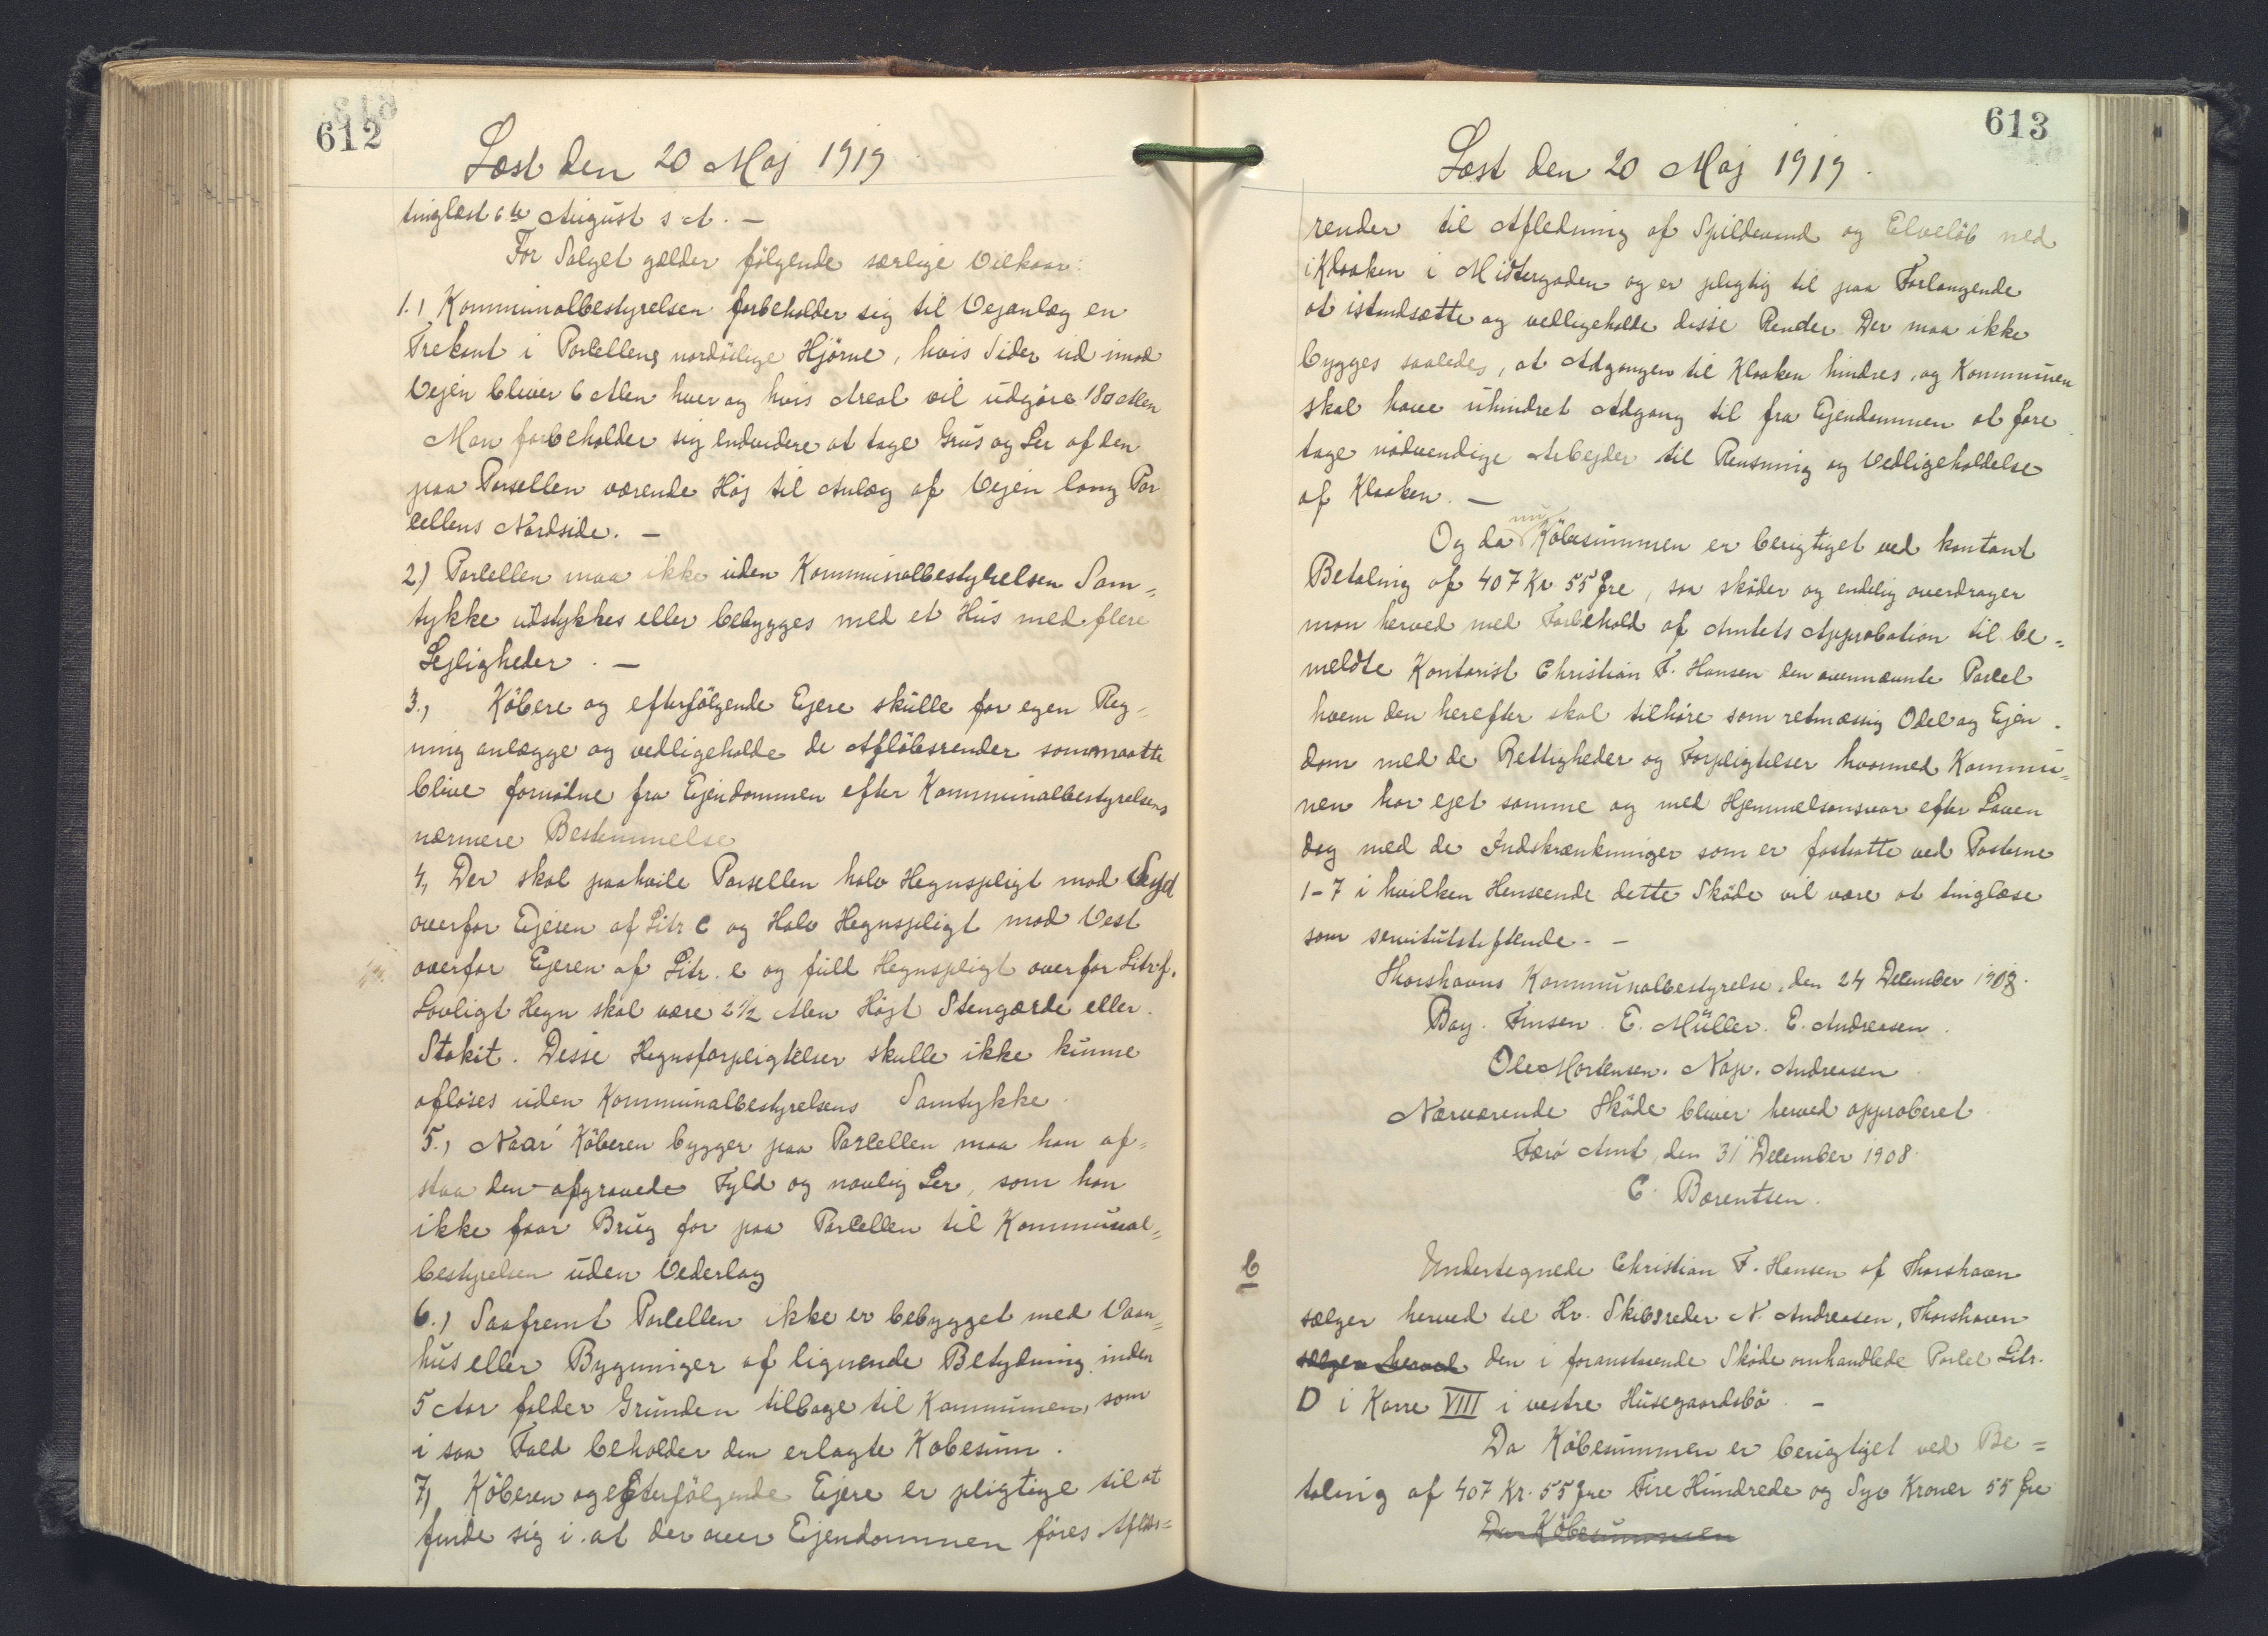 612
Læst den 20 Maj 1919
tinglæst 6te August s A. —
For Salget gælder følgende særlige Vilkaar:
1.) Kommunalbestyrelsen forbeholder sig til Vejanlæg en
Trekant i Parcellens nordöstlige Hjörne, hvis Sider ud imod
Vejen bliver 6 Alen hver og hvis Areal vil udgöre 18 □ Alen
Man forbeholder sig endvidere at tage Grus og Ler af den
paa Parsellen værende Höj til Anlæg af Vejen lang Par
cellens Nordside. —
2) Parcellen maa ikke uden Kommunalbestyrelsen Sam=
tykke udstykkes eller bebygges med et Hus med flere
Lejligheder. —
3., Köbere og efterfölgende Ejere skulle for egen Reg=
ning anlægge og vedligeholde de Aflöbsrender som maatte
blive fornödne fra Ejendommen efter Kommunalbestyrelsens
nærmere Bestemmelse
4, Der skal paahvile Parsellen halv Hegnspligt mod Syd
overfor Ejeren af Litr C og Halv Hegnspligt mod Vest
overfor Ejeren af Litr. e og fuld Hegnspligt overfor Litr f.
Lovligt Hegn skal være 2 1/2 Alen Höjt Stengærde eller
Stakit. Desse Hegnsforpligtelser skulle ikke kunne
aflöses uden Kommunalbestyrelsens Samtykke.
5., Naar Köberen bygger paa Parcellen maa han af=
staa den afgravede Fyld og navlig Ler, som han
ikke faar Brug for paa Parcellen til Kommunal=
bestyrelsen uden Vederlag
6.) Saafremt Parcellen ikke er bebygget med Vaan=
hus eller Bygninger af lignende Betydning inden
5 Aar falder Grunden tilbage til Kommunen, som
i saa Fald beholder den erlagte Kobesum.
7) Köberen og efterfölgende Ejere er pligtige til at
finde sig i at der over Ejendommen föres Aflöbs=
613
Læst den 20 Maj 1919.
render til Afledning af Spildevand og Elvelöb ned
i Kloaken i Midtergaden og er pligtig til paa Forlangende
at istandsætte og vedligeholde disse Render Der maa ikke
bygges saaledes, at Adgangen til Kloaken hindres, og Kommunen
skal have uhindret Adgang til fra Ejendommen at fore
tage nödvendige Arbejder til Rensning og Vedligeholdelse
af Kloaken. —
Og da nu Köbesummen er berigtiget ved kontant
Betaling af 407 Kr. 55 Øre, saa sköder og endelig overdrager
man herved med Forbehold af Amtets Approbation til be=
meldte Kontorist Christian F. Hansen den ovennævnte Parcel
hvem den herefter skal tilhöre som retmæssig Odel og Ejen
dom med de Rettigheder og Forpligtelser hvormed Kommu=
nen har ejet samme og med Hjemmelsansvar efter Loven
dog med de Indskrænkninger som er fastsatte ved Posterne
1-7 i hvilken Henseende dette Sköde vil være at tinglæse
som servitutstiftende. —
Thorshavns Kommunalbestyrelse, den 24 December 1908.
Bay. Finsen. E. Müller. E. Andreasen
Ole Mortensen. Nap. Andreasen
Nærværende Sköde bliver herved approberet
Færö Amt, den 31 December 1908.
C. Bærentsen.
b Undertegnede Christian F. Hansen af Thorshavn
sælger herved til Hr. Skibsreder N. Andreasen, Thorshavn
sælger herved den i foranstaaende Sköde omhandlede Parcel Litr.
D i Karre VIII i vestre Husegaardsbö. —
Da Köbesummen er berigtiget ved Be=
taling af 407 Kr. 55 Øre Fire Hundrede og Syv Kroner 55 Øre
Da Köbesummen